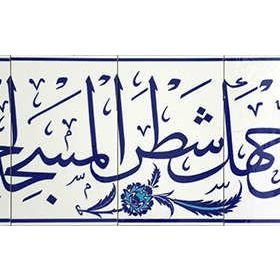 وجهك شطر المسجد